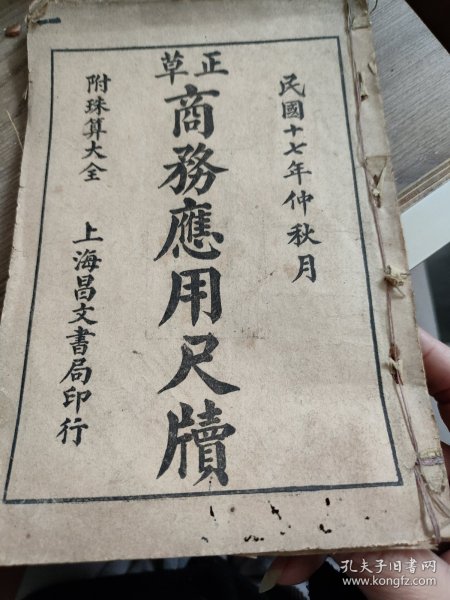 民國十七年仲秋月
正草
商務應用尺牘
附珠算大全
上海昌文書局印行
孔夫子旧书网
www.kongfz.com